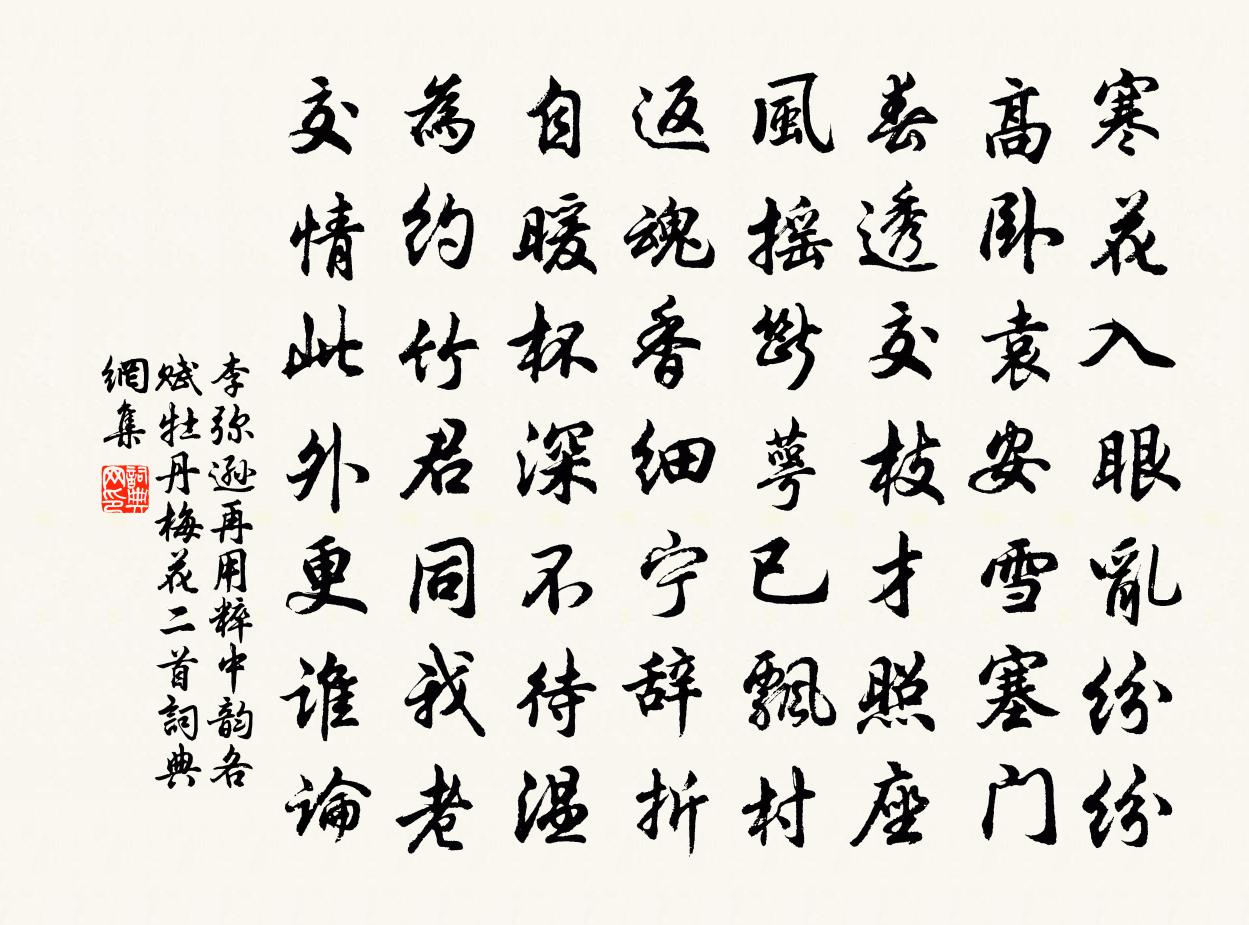 寒花入眼亂紛紛
高卧袁安雪塞门
春透交枝才照座
風摇斷萼已飄村
返魂香细宁辞折
自暖杯深不待温
為约竹君同我老
交情此外更谁論
李弥遜再用粹中韵各
赋牡丹梅花二首詞典
網集
詞典網印